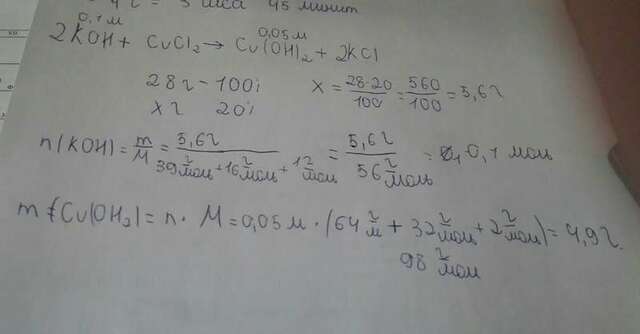 = 3 часа 45 минут
0,1 м 0,05 м
2KOH + CuCl₂ → Cu(OH)₂ + 2KCl
28г – 100% x = 28·20/100 = 560/100 = 5,6г
xг 20%
n(KOH) = m/M = 5,6г/(39 г/моль + 16 г/моль + 1 г/моль) = 5,6г/56 г/моль = 0,1 моль
m Cu(OH₂) = n · M = 0,05 м · (64 г/м + 32 г/моль + 2 г/моль) = 4,9г.
98 г/моль